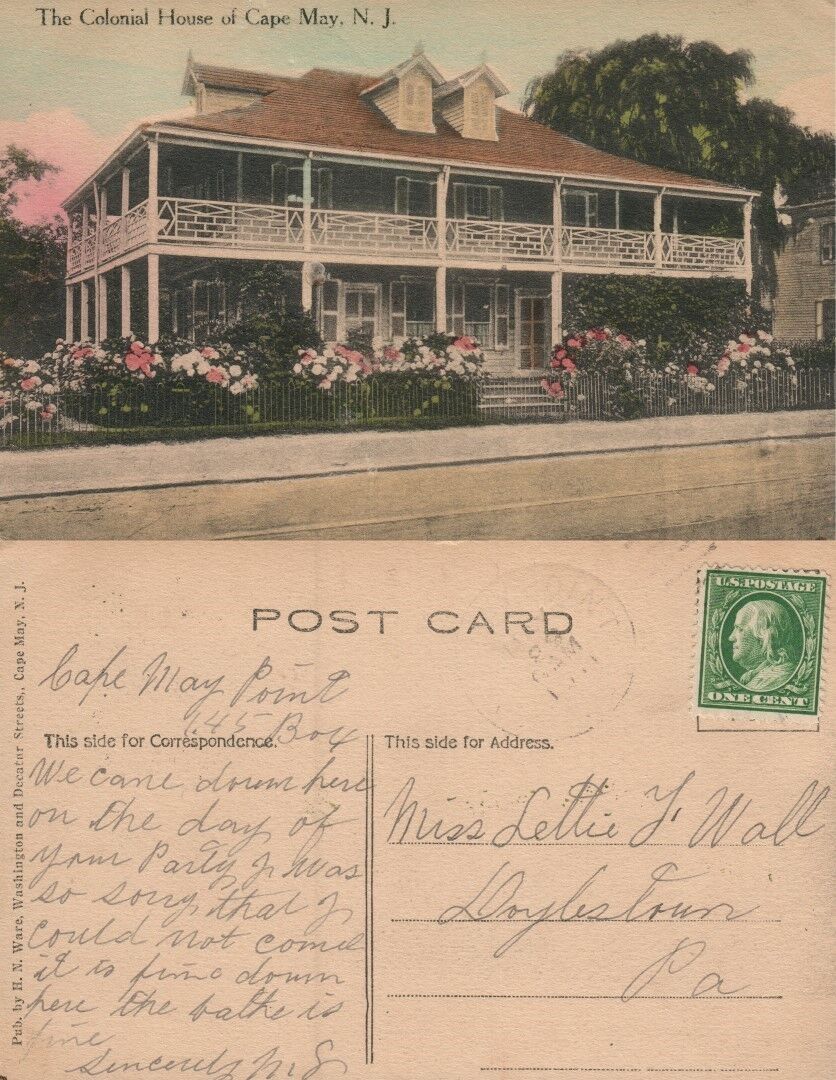 The Colonial House of Cape May, N. J.
POST CARD
U.S. POSTAGE
ONE CENT
Cape May Point
145 Box
This side for Correspondence.
This side for Address.
We cane down here
on the day of
your Party I was
so sorry that I
could not come
it is fine down
here the bathe is
fine
Sincerely
Miss Lettie F. Wall
Doylestown
Pa
Pub. by H. N. Ware, Washington and Decatur Streets., Cape May, N. J.